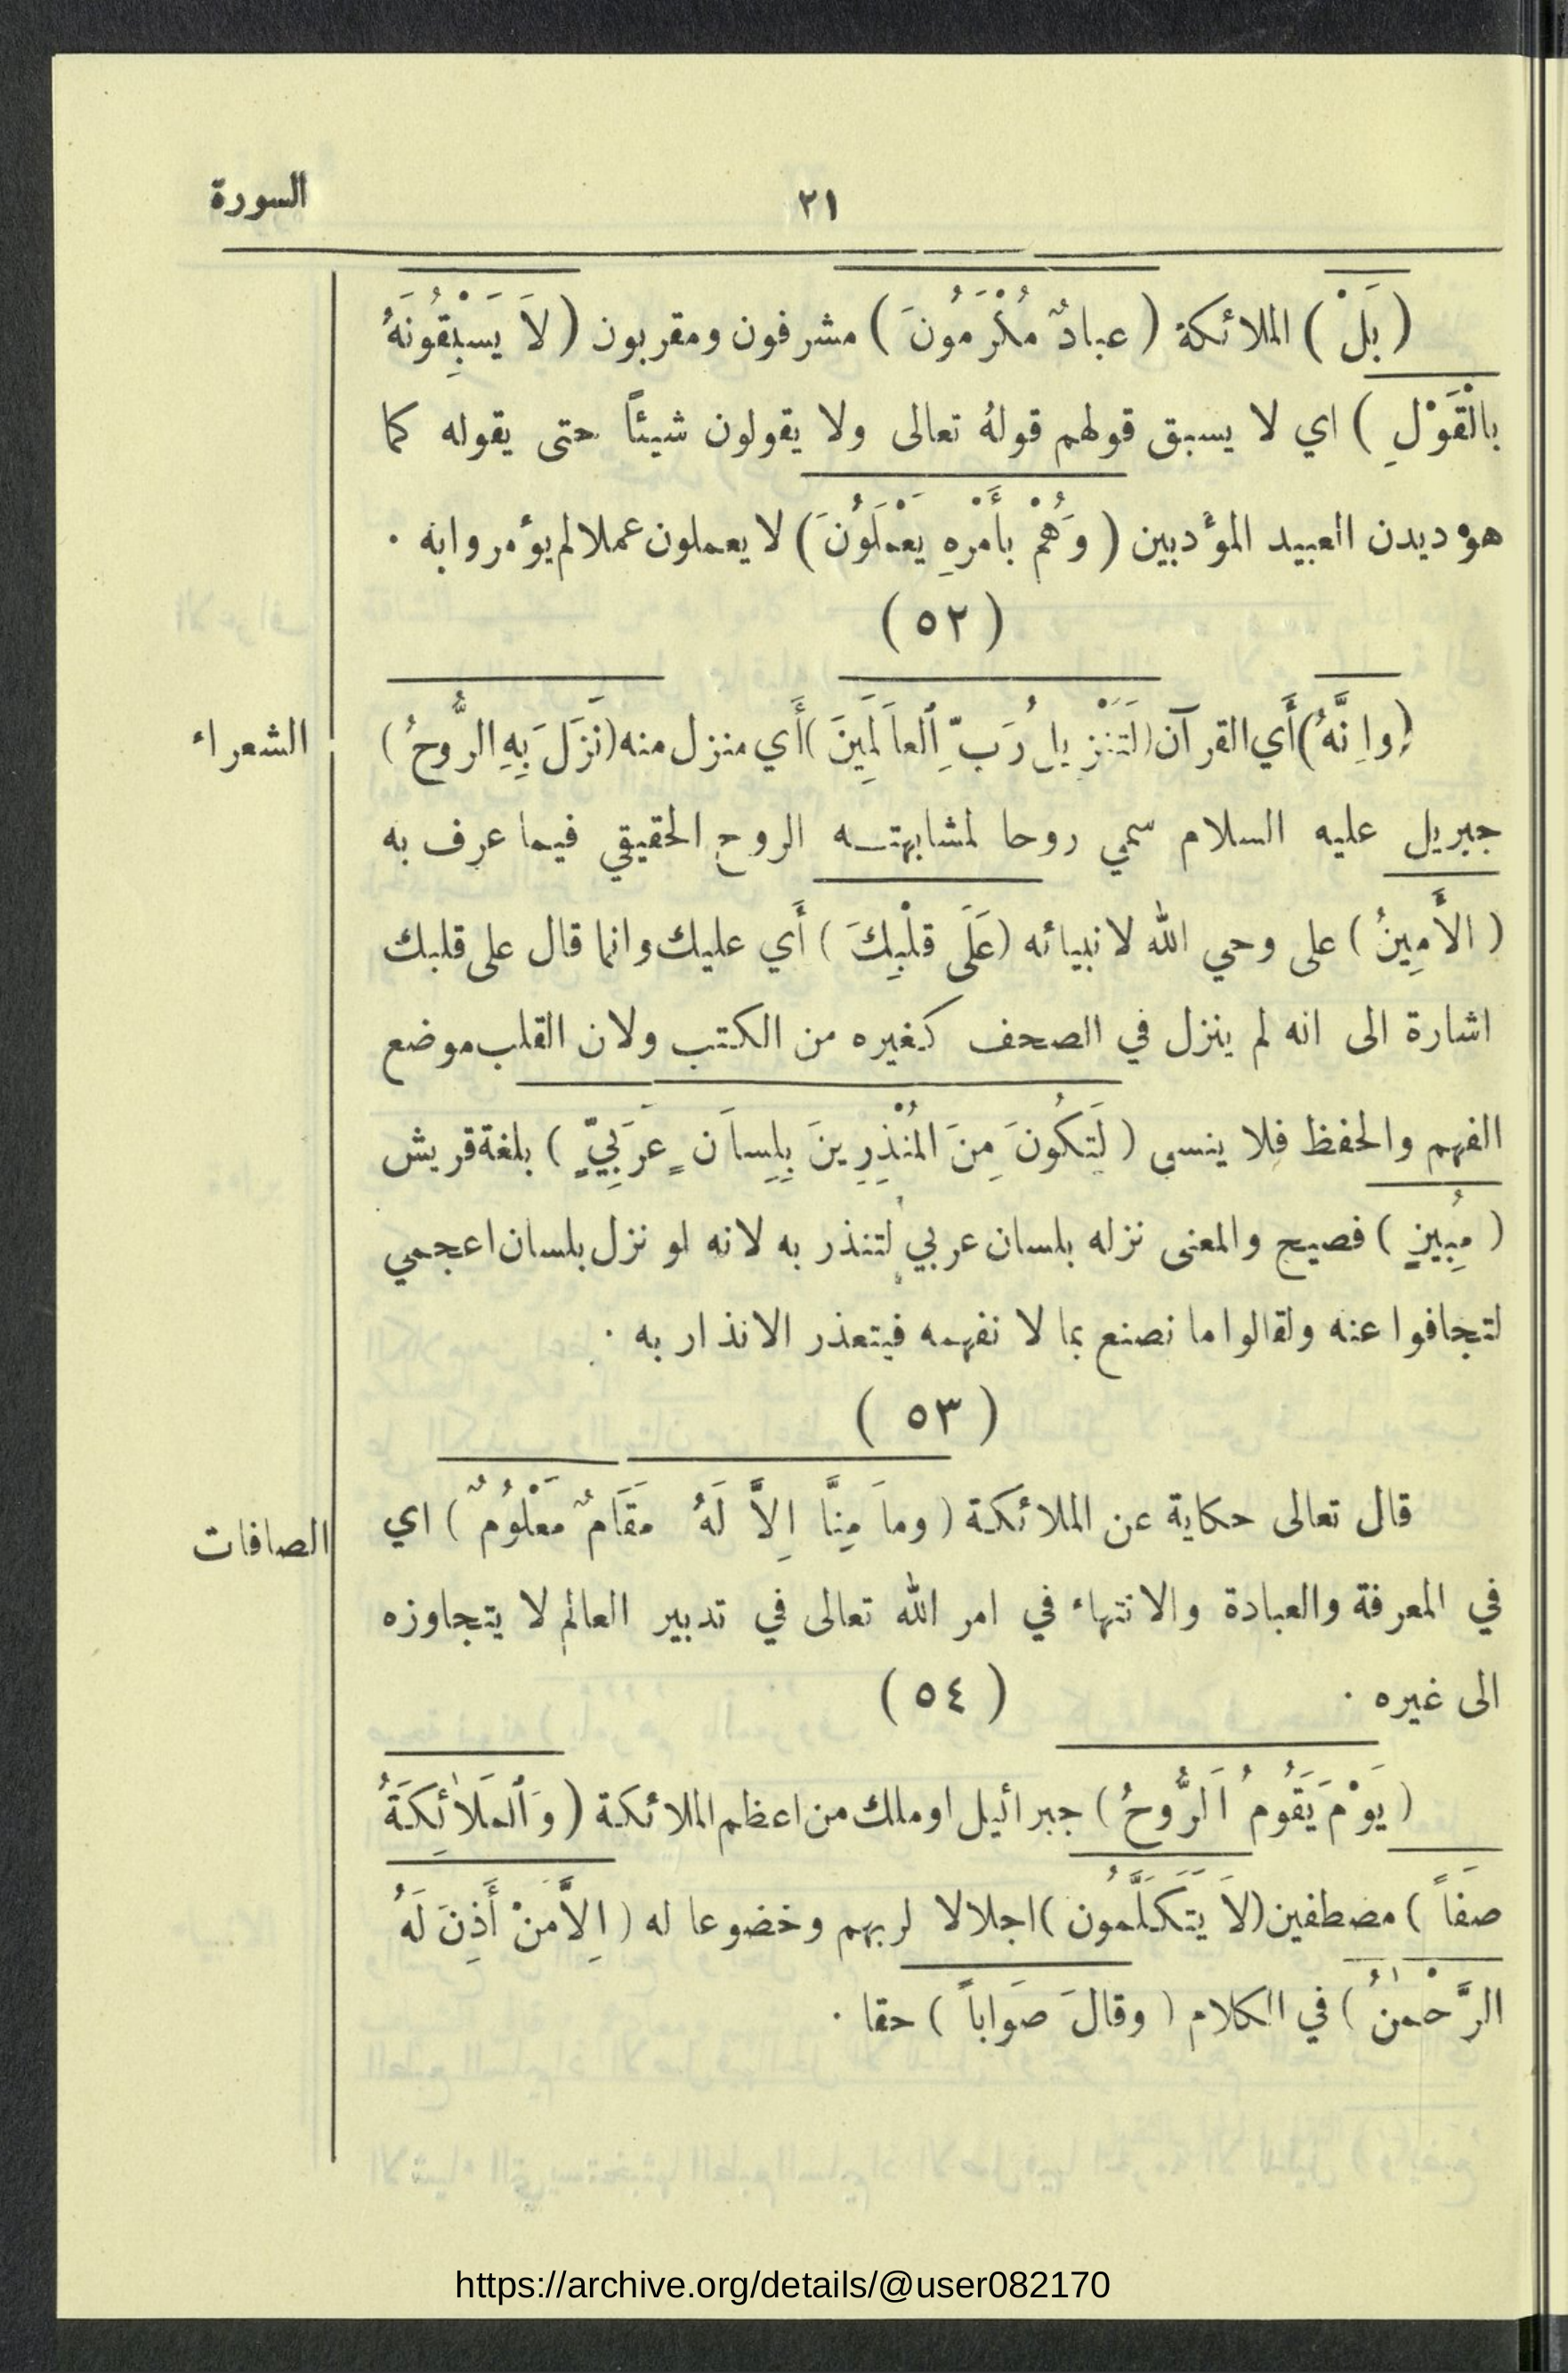 ٢١ السورة
( بَلْ ) الملائكة ( عبادٌ مُكْرَمُونَ ) مشرفون ومقربون ( لاَ يَسْبِقُونَهُ
بالْقَوْلِ ) اي لا يسبق قولهم قولهُ تعالى ولا يقولون شيئاً حتى يقوله كما
هو ديدن العبيد المؤدبين ( وَهُمْ بأَمْرِهِ يَعْمَلُونَ ) لا يعملون عملا لم يؤمروا به ٠
( ٥٢ )
( وإِنَّهُ ) أَي القرآن ( لَتَنْزِيلُ رَبِّ ٱلعاَلَمِينَ ) أَي منزل منه ( نَزَلَ بِهِ الرُّوحُ )
الشعراء
جبريل عليه السلام سمي روحا لمشابهته الروح الحقيقي فيما عرف به
( الأَمِينُ ) على وحي الله لانبيائه ( عَلَى قلْبِكَ ) أَي عليك وانما قال على قلبك
اشارة الى انه لم ينزل في الصحف كغيره من الكتب ولان القلب موضع
الفهم والحفظ فلا ينسى ( لِتَكُونَ مِنَ المُنْذِرِينَ بِلِساَنٍ عَرَبِيٍّ ) بلغة قريش
( مُبِينٍ ) فصيح والمعنى نزله بلسان عربي لتنذر به لانه لو نزل بلسان اعجمي
لتجافوا عنه ولقالوا ما نصنع بما لا نفهمه فيتعذر الانذار به ٠
( ٥٣ )
قال تعالى حكاية عن الملائكة ( وماَ مِنَّا إِلاَّ لَهُ مَقَامٌ مَعْلُومٌ ) اي
الصافات
في المعرفة والعبادة والانتهاء في امر الله تعالى في تدبير العالم لا يتجاوزه
الى غيره ٠ ( ٥٤ )
( يَوْمَ يَقُومُ اَلرُّوحُ ) جبرائيل او ملك من اعظم الملائكة ( وَٱلمَلاٰئِكَةُ
صَفاً ) مصطفين ( لاَ يَتَكَلَّمُون ) اجلالا لربهم وخضوعا له ( إِلاَّ مَنْ أَذِنَ لَهُ
الرَّحْمٰنُ ) في الكلام ( وقالَ صَواباً ) حقا ٠
https://archive.org/details/@user082170